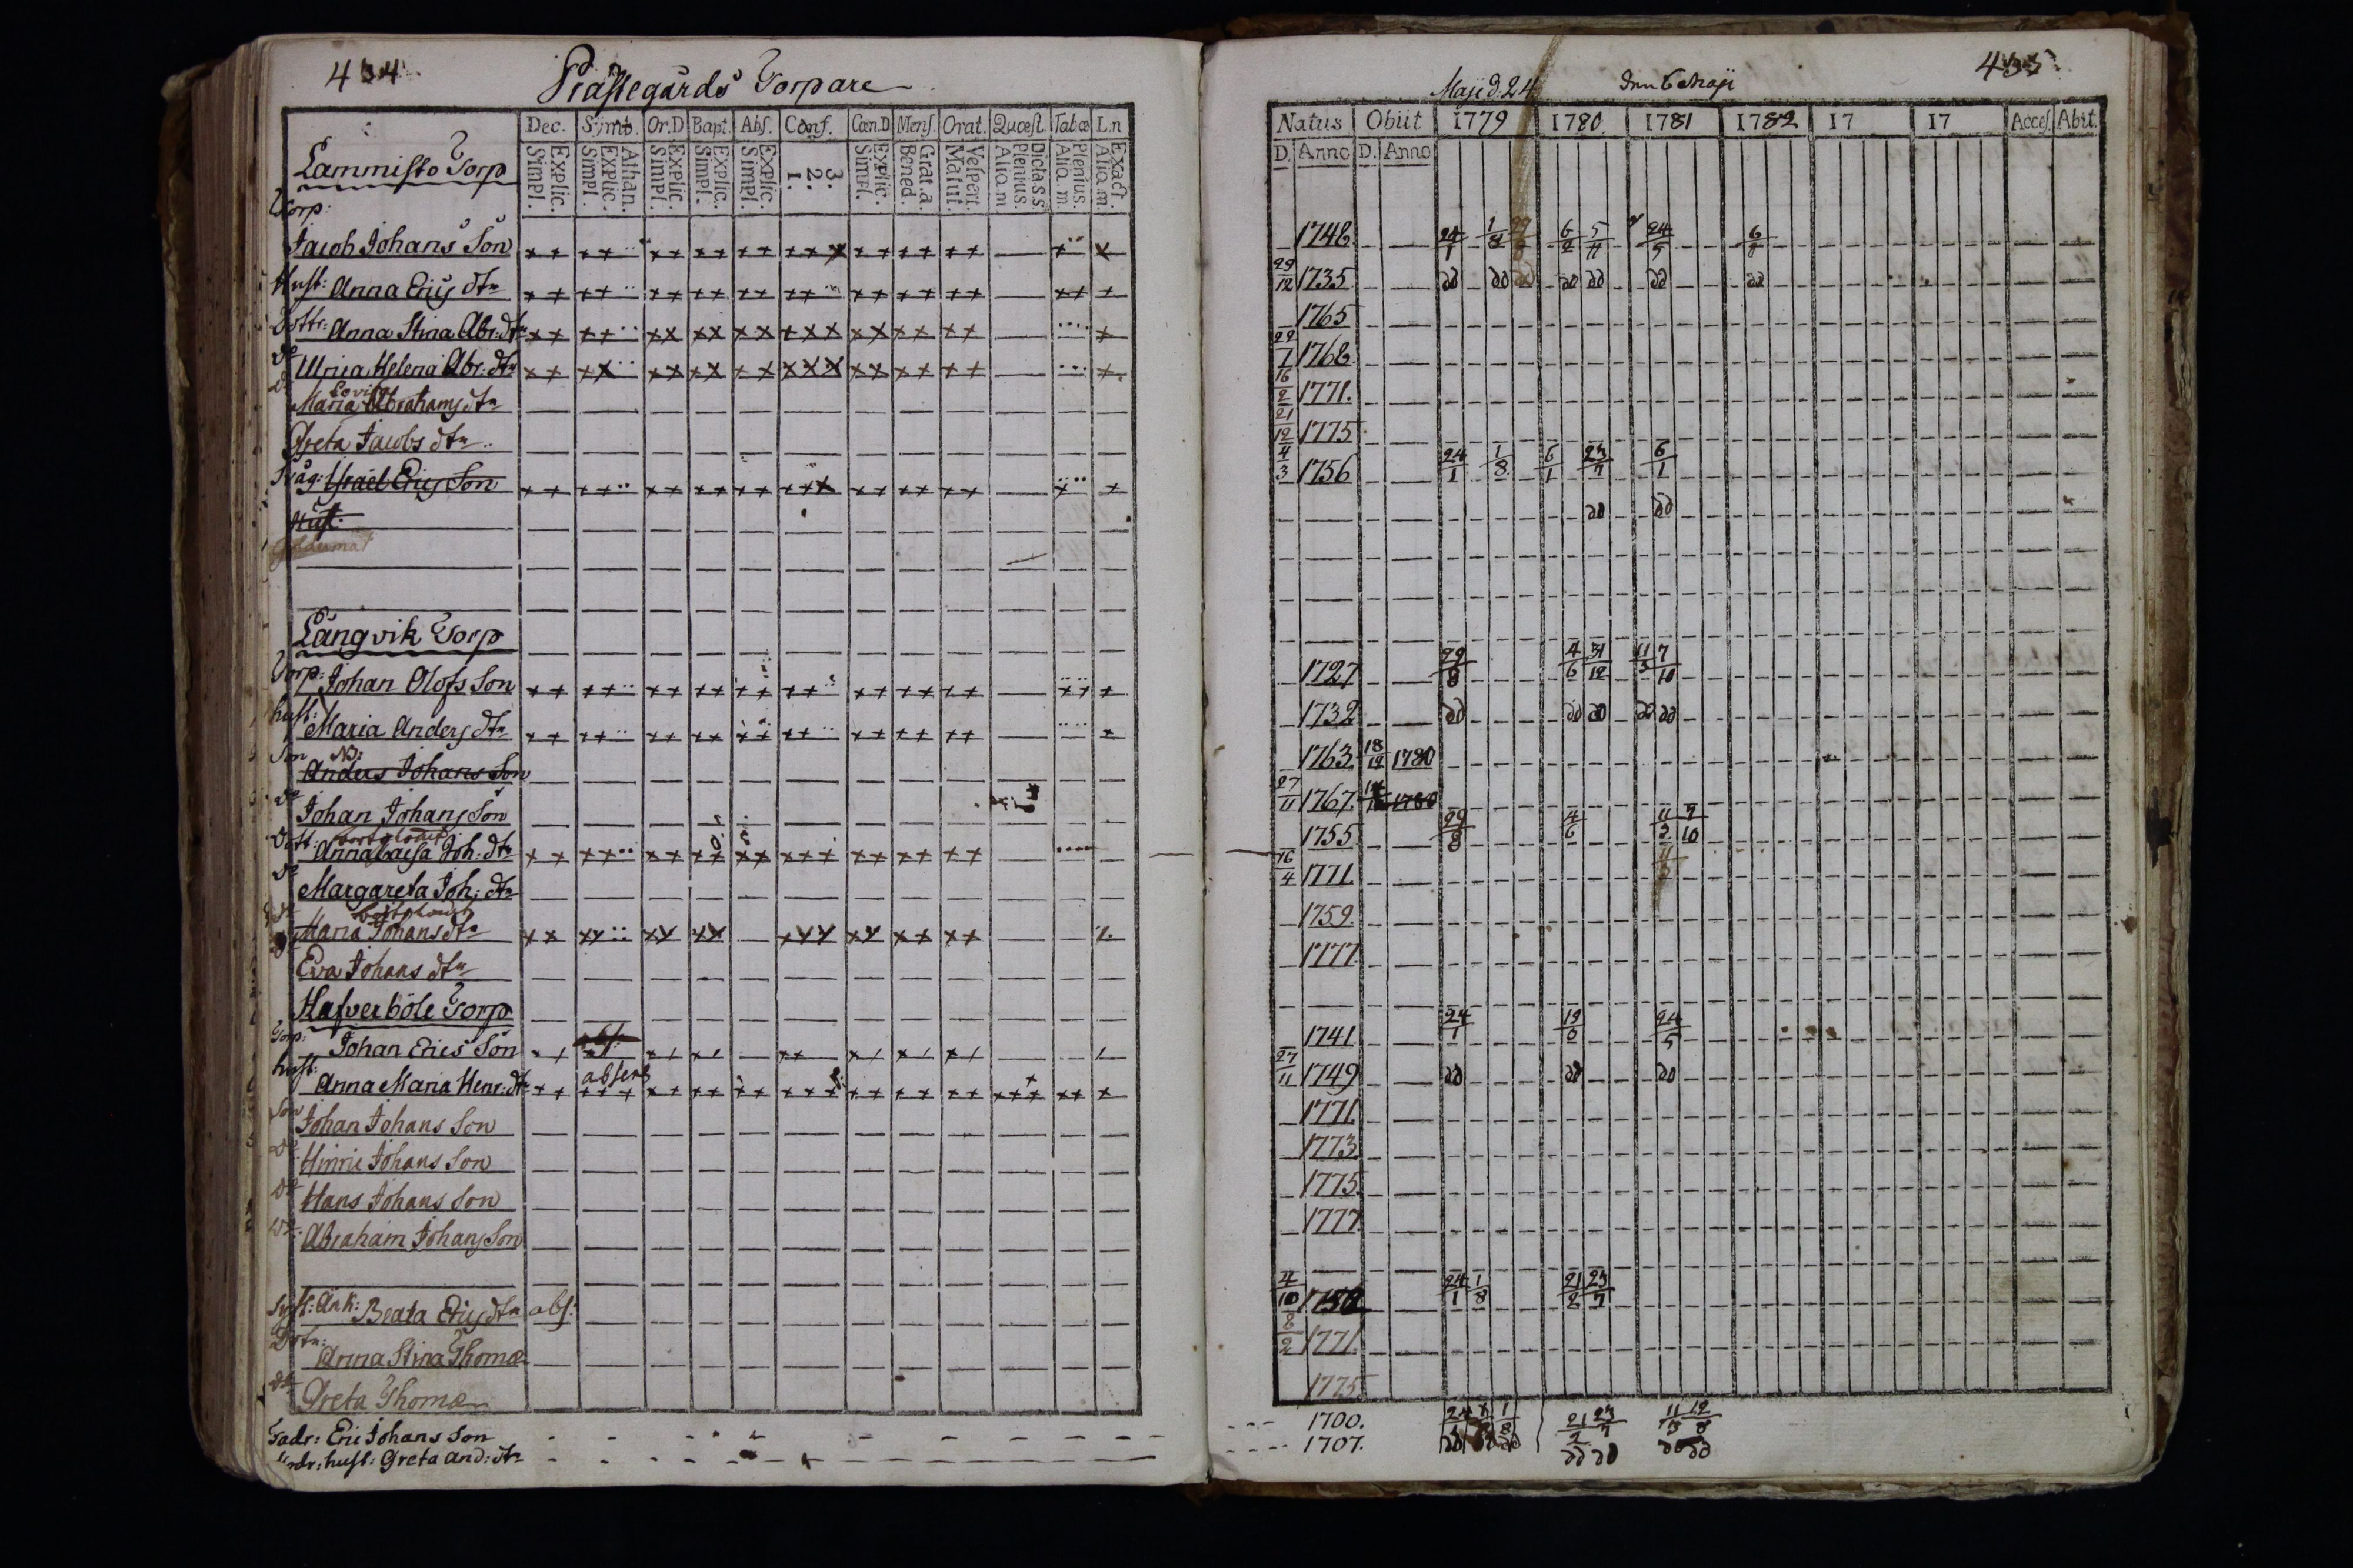 434
Prästegårds Torpare
Dec. Symb. Or.D Bapt. Abs. Conf. Cœn.D Mens. Orat. Quæst. Tabœ L.n
Explic. Simpl. Athan. Explic. Simpl. Explic. Simpl. Explic. Simpl. Explic. Simpl. 3. 2. 1. Explic. Simpl. Grat.a. Bened. Vespert. Matut. Dicta.s.s. Plenius. Aliq.m. Plenius. Aliq.m. Exact. Aliq.m.
Lammisto Torp
Torp:
Jacob Johans Son
Hust: Anna Erijs dtr
Dottr: Anna Stina Abr: dtr
Do Ulrica Helena Abr: dtr
Do Lovisa
Maria Abrahams dtr
Greta Jacobs dtr
Svåg: Israel Erics Son
Hust.
Långvik Torp
Torp: Johan Olofs Son
hust: Maria Anders dtr
Son Anders Johans Son
Do Johan Johans Son
Dott: Anna Caisa Joh: dtr
Do Margareta Joh: dtr
Maria Johans dtr
Eva Johans dtr
Hafverböle Torp
Torp: Johan Erics Son
hust: absens
Anna Maria Henr: dtr
Son Johan Johans Son
Do Hinric Johans Son
Do Hans Johans Son
Do: Abraham Johans Son
Änk: Beata Erijs dtr abs:
Dotr: Anna Stina Thomæ
Do Greta Thomæ
Fadr: Eric Johans Son
hust: Greta And: dtr
435
Maji d: 24 den 6 Maji
Natus Obiit 1779 1780 1781 1782 17 17 Acces. Abit.
D. Anno D. Anno
1748 24/1 1/8 6/2 24/5
29/12 1735 do do do do do do do
1765
1768
16/2 1771.
21/12 1775
4/3 1756 24/1 1/8 6/1 23/7 6/1
do do
1727 29/8 4/6 31/12 11/3 7/10
1732 do do do do do
1763 18/12 1780
27/11 1767. 1780
1755 29/8 4/6 11/3 7/10
16/4 1771
1759.
1777
1741 24/1 24/5
27/11 1749 do do do
1771
1773.
1775
1777
4/10 24/1 1/8 21/2 23/7
8/2 1771.
1775
1700. 1/8 21/2 23/7
1707. do do do do